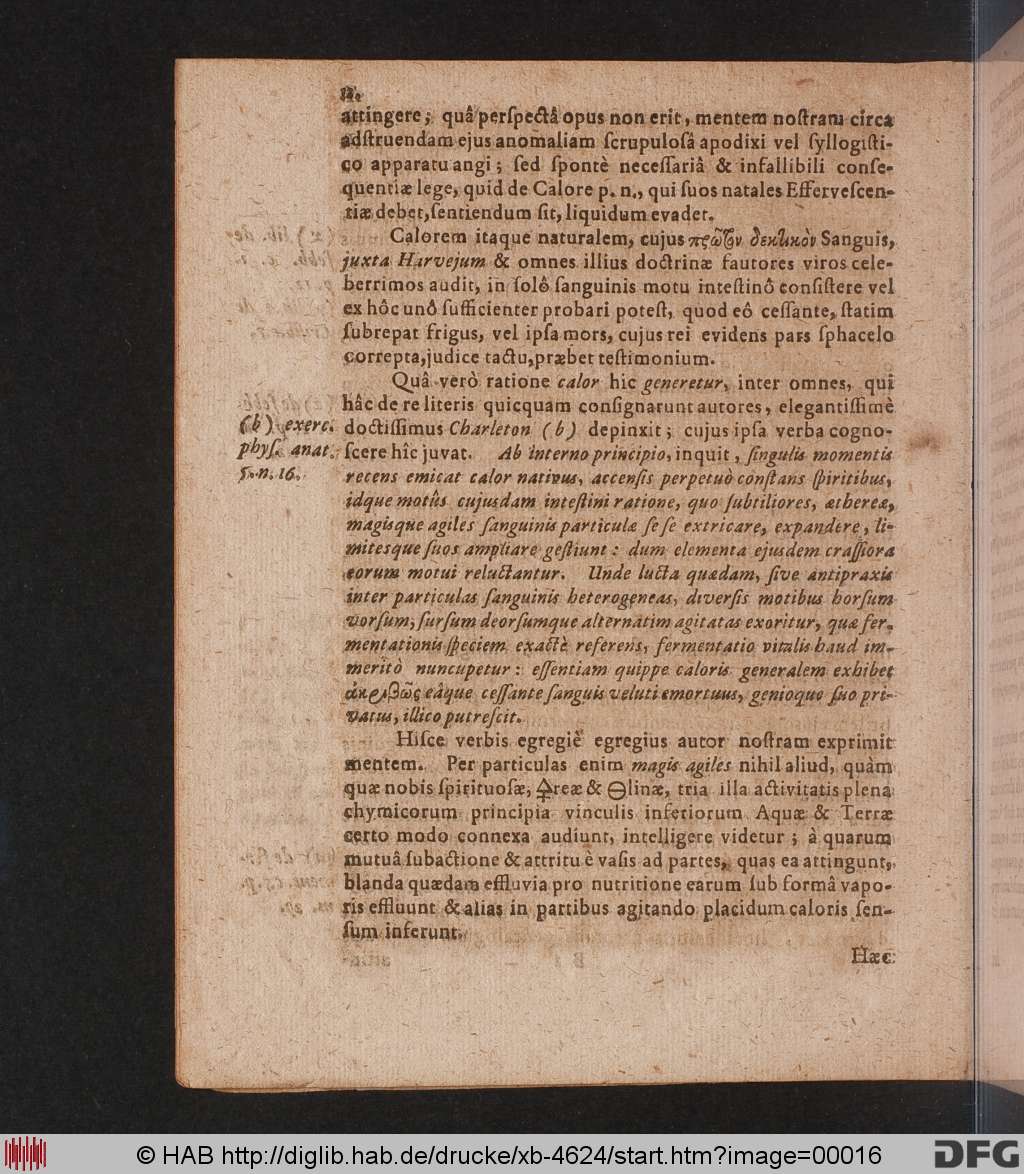 12.
attingere; quâ perſpectâ opus non erit, mentem noſtram circa
adſtruendam ejus anomaliam ſcrupuloſâ apodixi vel ſyllogiſti-
co apparatu angi; ſed ſpontè neceſſariâ & infallibili conſe-
quentiæ lege, quid de Calore p. n., qui ſuos natales Efferveſcen-
tiæ debet, ſentiendum ſit, liquidum evadet.
Calorem itaque naturalem, cujus πρῶτον δεκτικὸν Sanguis,
juxta Harvejum & omnes illius doctrinæ fautores viros cele-
berrimos audit, in ſolô ſanguinis motu inteſtinô conſiſtere vel
ex hôc unô ſufficienter probari poteſt, quod eô ceſſante, ſtatim
ſubrepat frigus, vel ipſa mors, cujus rei evidens pars ſphacelo
correpta, judice tactu, præbet teſtimonium.
Quâ verò ratione calor hic generetur, inter omnes, qui
hâc de re literis quicquam conſignarunt autores, elegantiſſimè
doctiſſimus Charleton (b) depinxit; cujus ipſa verba cogno-
ſcere hîc juvat. Ab interno principio, inquit, ſingulis momentis
recens emicat calor nativus, accenſis perpetuò conſtans ſpiritibus,
idque motûs cujusdam inteſtini ratione, quo ſubtiliores, æthereæ,
magisque agiles ſanguinis particulæ ſe ſe extricare, expandere, li-
mitesque ſuos ampliare geſtiunt: dum elementa ejusdem craſſiora
eorum motui reluctantur. Unde lucta quædam, ſive antipraxis
inter particulas ſanguinis heterogeneas, diverſis motibus horſum
vorſum, ſurſum deorſumque alternatim agitatas exoritur, quæ fer-
mentationis ſpeciem exactè referens, fermentatio vitalis haud im-
meritò nuncupetur: eſſentiam quippe caloris generalem exhibet
ἀκριβῶς eâque ceſſante ſanguis veluti emortuus, genioque ſuo pri-
vatus, illico putreſcit.
(b) exerc.
phyſ. anat.
5. n. 16.
Hiſce verbis egregiè egregius autor noſtram exprimit
mentem. Per particulas enim magis agiles nihil aliud, quàm
quæ nobis ſpirituoſæ, 🜍reæ & 🜔linæ, tria illa activitatis plena
chymicorum principia vinculis inferiorum Aquæ & Terræ
certo modo connexa audiunt, intelligere videtur; à quarum
mutuâ ſubactione & attritu è vaſis ad partes, quas ea attingunt,
blanda quædam effluvia pro nutritione earum ſub formâ vapo-
ris effluunt & alias in partibus agitando placidum caloris ſen-
ſum inferunt.
Hæc
© HAB http://diglib.hab.de/drucke/xb-4624/start.htm?image=00016
DFG